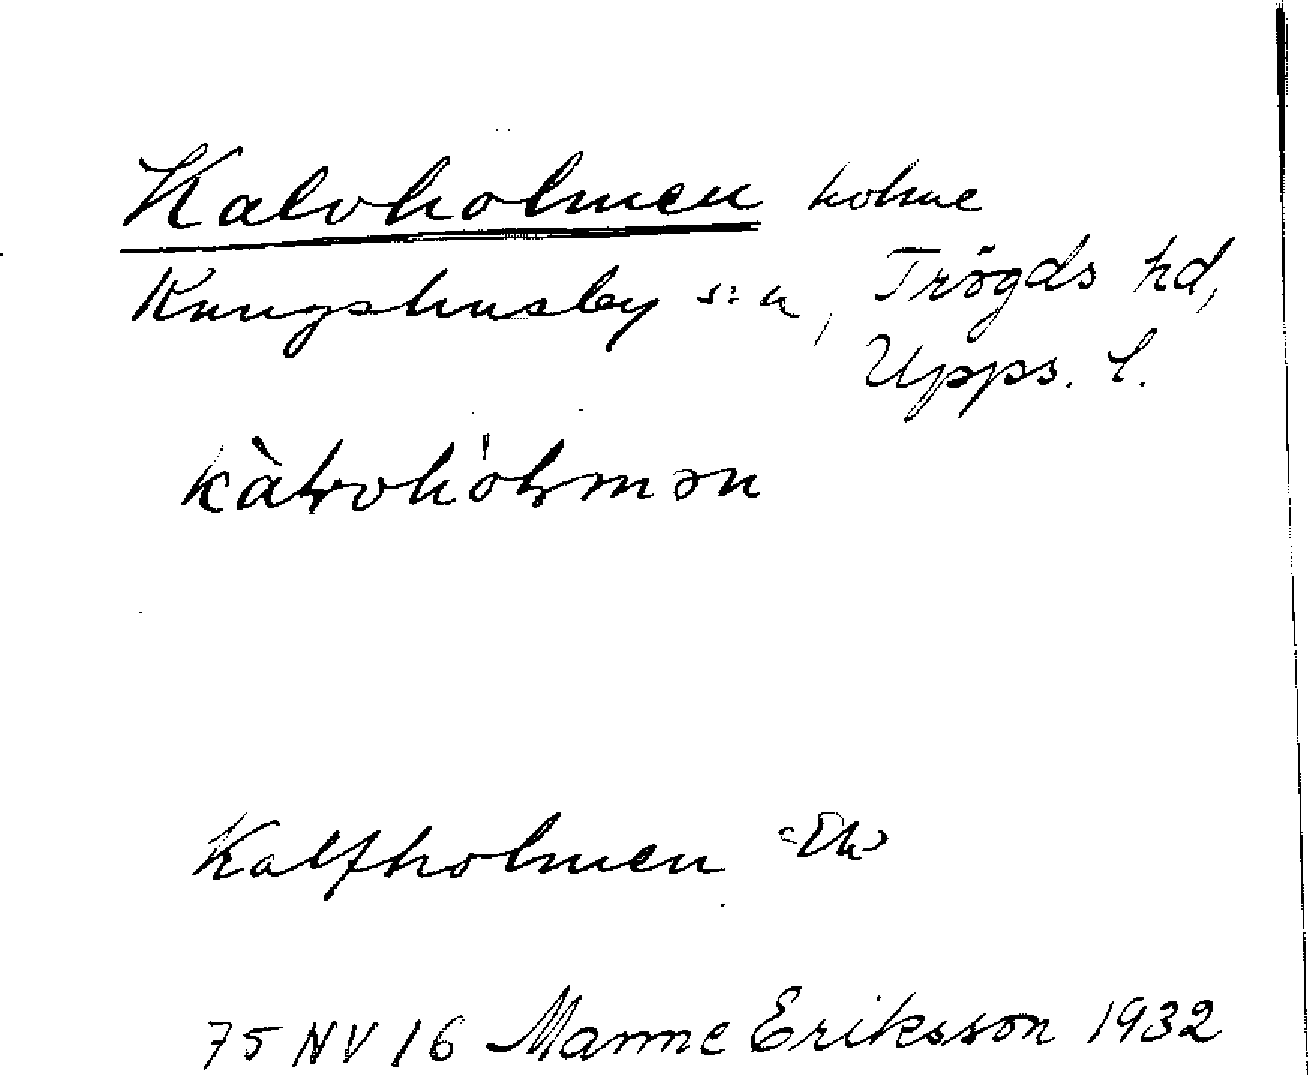 Kalvholmen holme
Kungshusby s:n, Trögds hd,
Upps. l.
kàlvhólmən
Kalfholmen Ek
75 NV 16 Manne Eriksson 1932